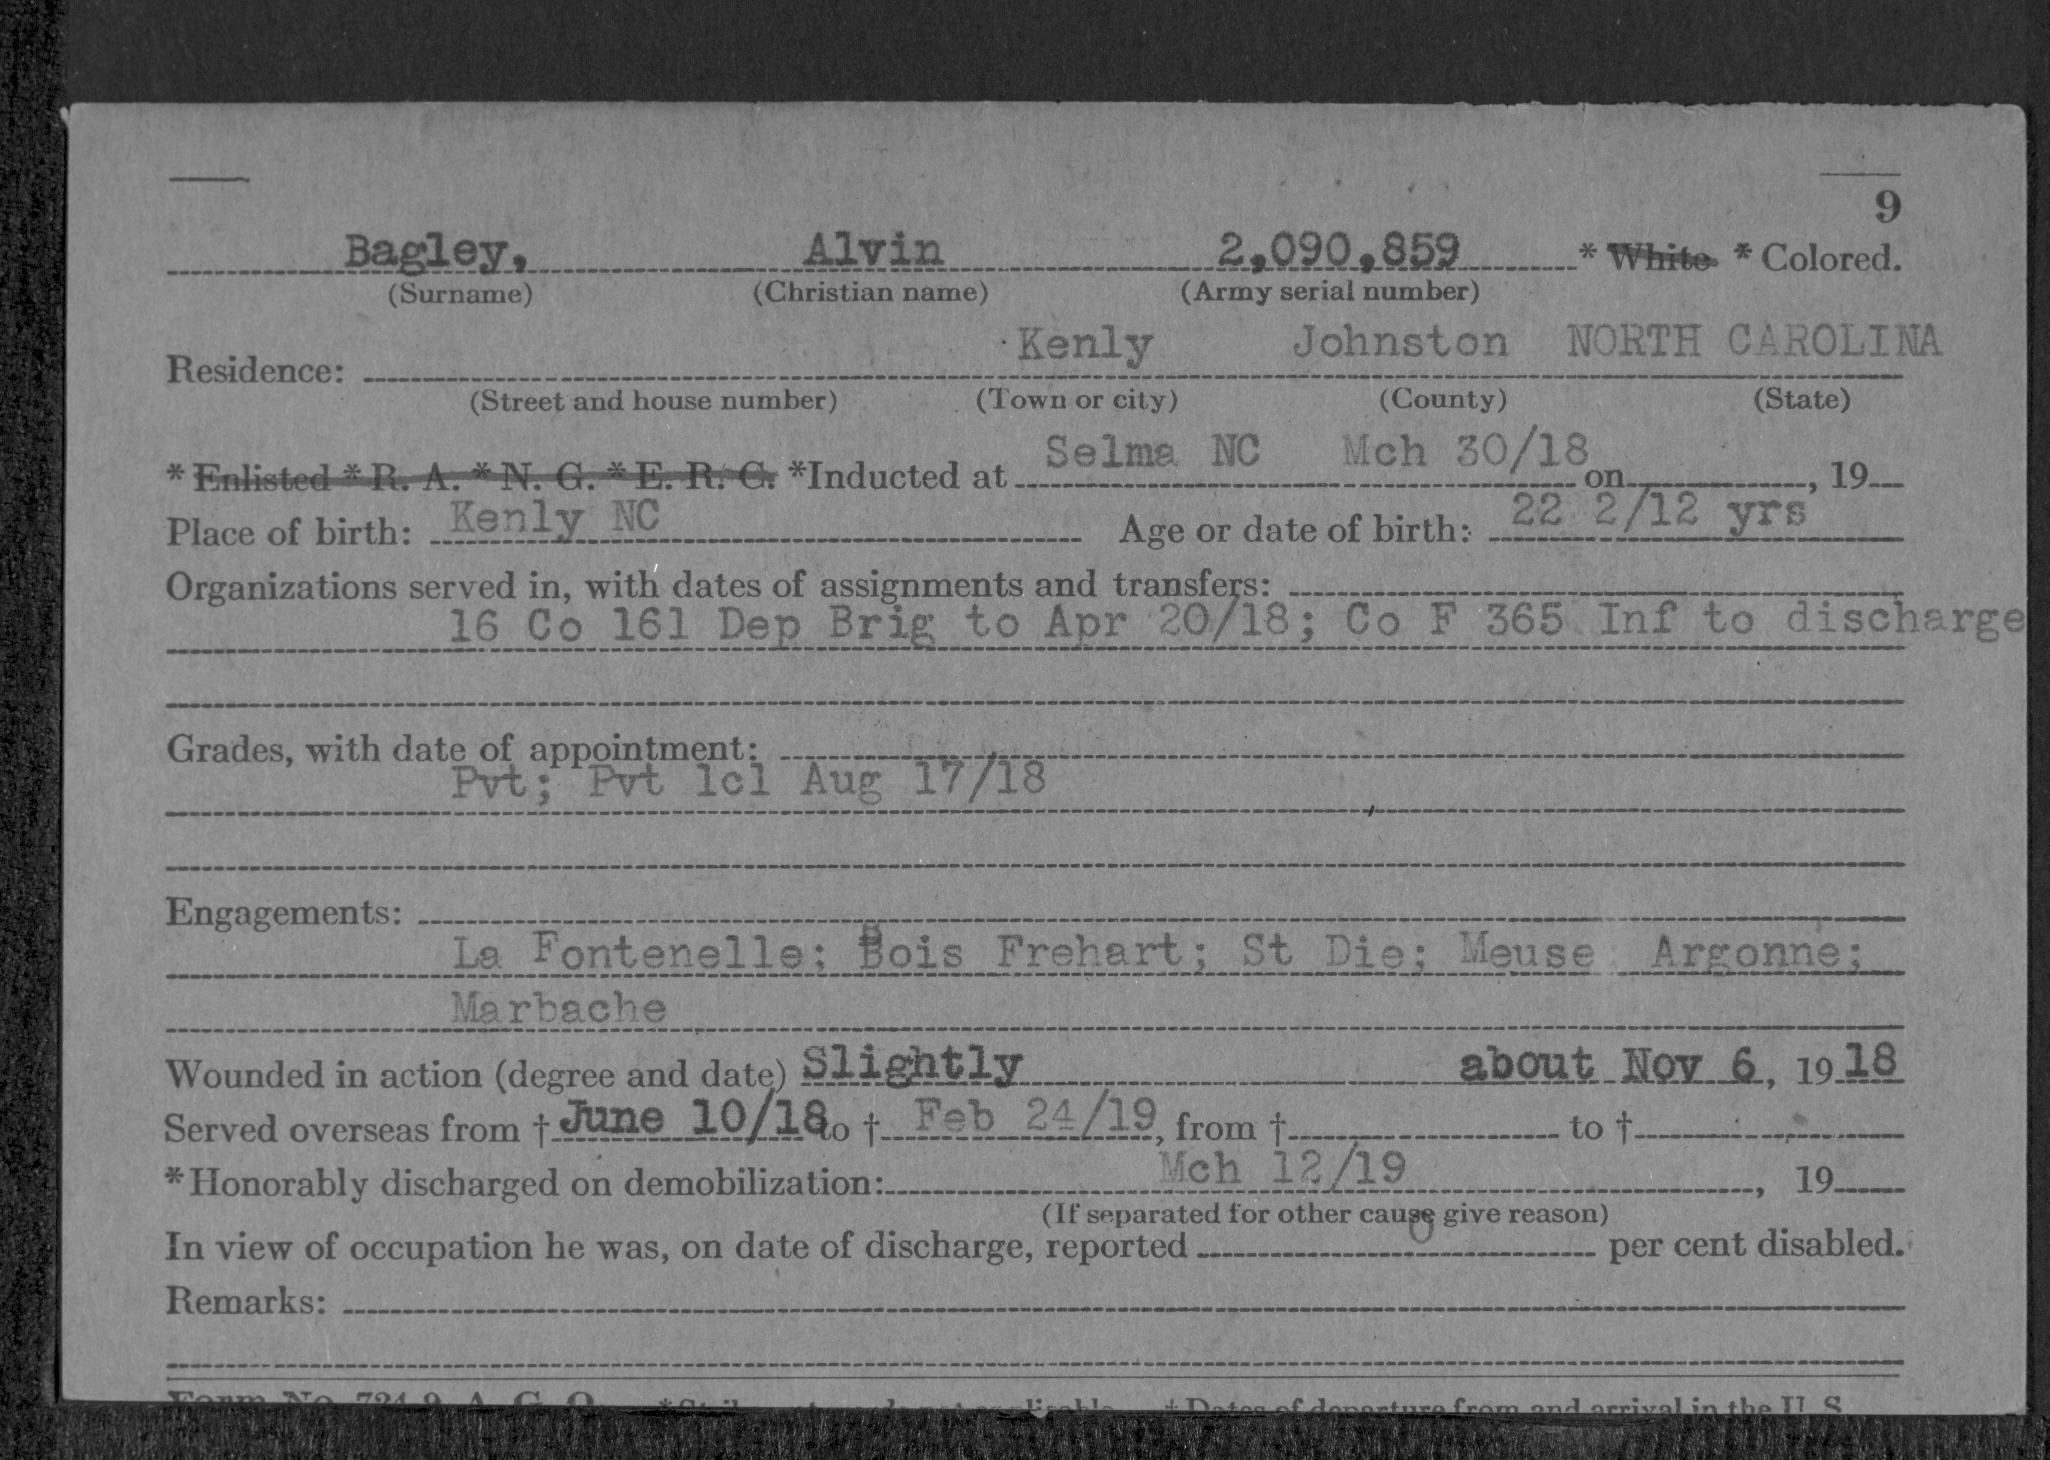 9
Bagley, Alvin 2,090,859 * White * Colored.
(Surname) (Christian name) (Army serial number)
Kenly Johnston NORTH CAROLINA
Residence:
(Street and house number) (Town or city) (County) (State)
Selma NC Mch 30/18
* Enlisted * R. A. * N. G. * E. R. C. *Inducted at on , 19
Place of birth: Kenly NC Age or date of birth: 22 2/12 yrs
Organizations served in, with dates of assignments and transfers:
16 Co 161 Dep Brig to Apr 20/18; Co F 365 Inf to discharge
Grades, with date of appointment:
Pvt; Pvt 1cl Aug 17/18
Engagements:
La Fontenelle; Bois Frehart; St Die; Meuse Argonne;
Marbache
Wounded in action (degree and date) Slightly about Nov 6, 1918
Served overseas from † June 10/18 to † Feb 24/19, from † to †
*Honorably discharged on demobilization: Mch 12/19 , 19
(If separated for other cause give reason)
In view of occupation he was, on date of discharge, reported 0 per cent disabled.
Remarks:
Form No. 724-9, A. G. O. *Strike out words not applicable. † Dates of departure from and arrival in the U. S.